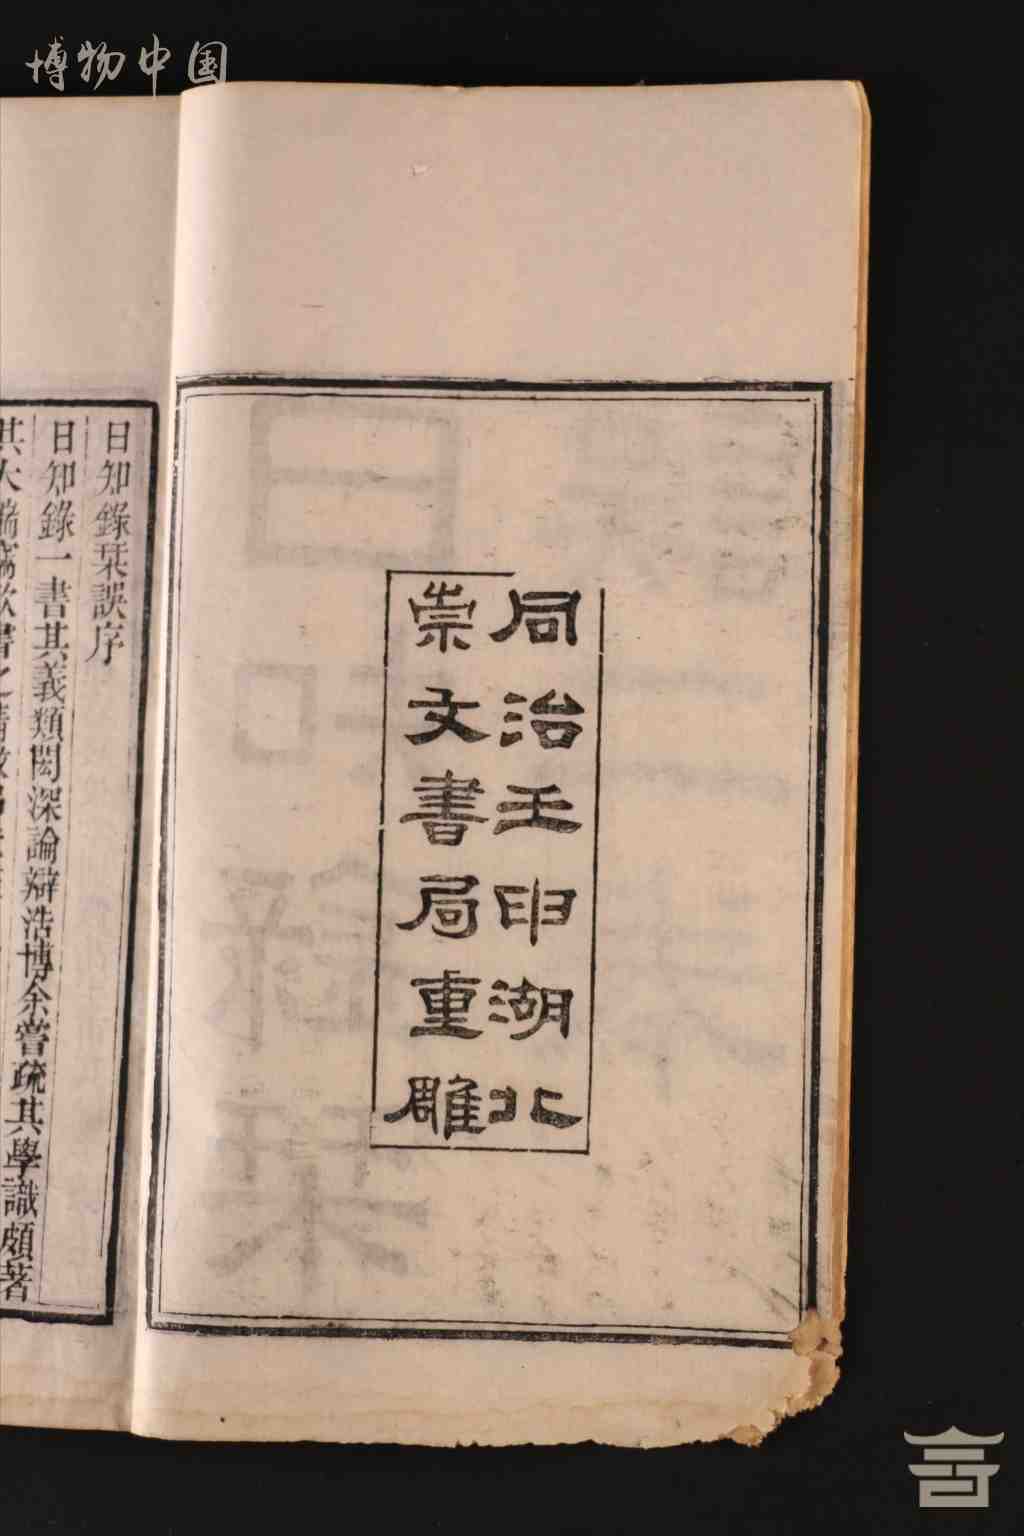 博物中国
同治壬申湖北
崇文書局重雕
日知錄栞誤序
日知錄一書其義類閎深論辯浩博余嘗疏其學識頗著
其大端竊歎書之精